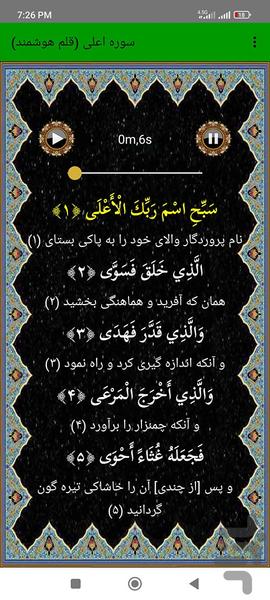 7:26 PM
سوره اعلی (قلم هوشمند)
0m,6s
سَبِّحِ اسْمَ رَبِّكَ الْأَعْلَى ﴿١﴾
نام پروردگار والای خود را به پاکی بستای (۱)
الَّذِي خَلَقَ فَسَوَّى ﴿٢﴾
همان که آفرید و هماهنگی بخشید (۲)
وَالَّذِي قَدَّرَ فَهَدَى ﴿٣﴾
و آنکه اندازه‌ گیری کرد و راه نمود (۳)
وَالَّذِي أَخْرَجَ الْمَرْعَى ﴿٤﴾
و آنکه چمنزار را برآورد (۴)
فَجَعَلَهُ غُثَاءً أَحْوَى ﴿٥﴾
و پس [از چندی] آن را خاشاکی تیره گون
گردانید (۵)